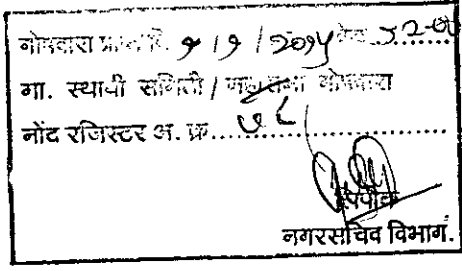 गोषवारा प्राप्त दि. ९/९/२०१५ वेळ ५२-००
मा. स्थायी समिती / महासभा गोषवारा
नोंद रजिस्टर अ. क्र. ७८
नगरसचिव विभाग.